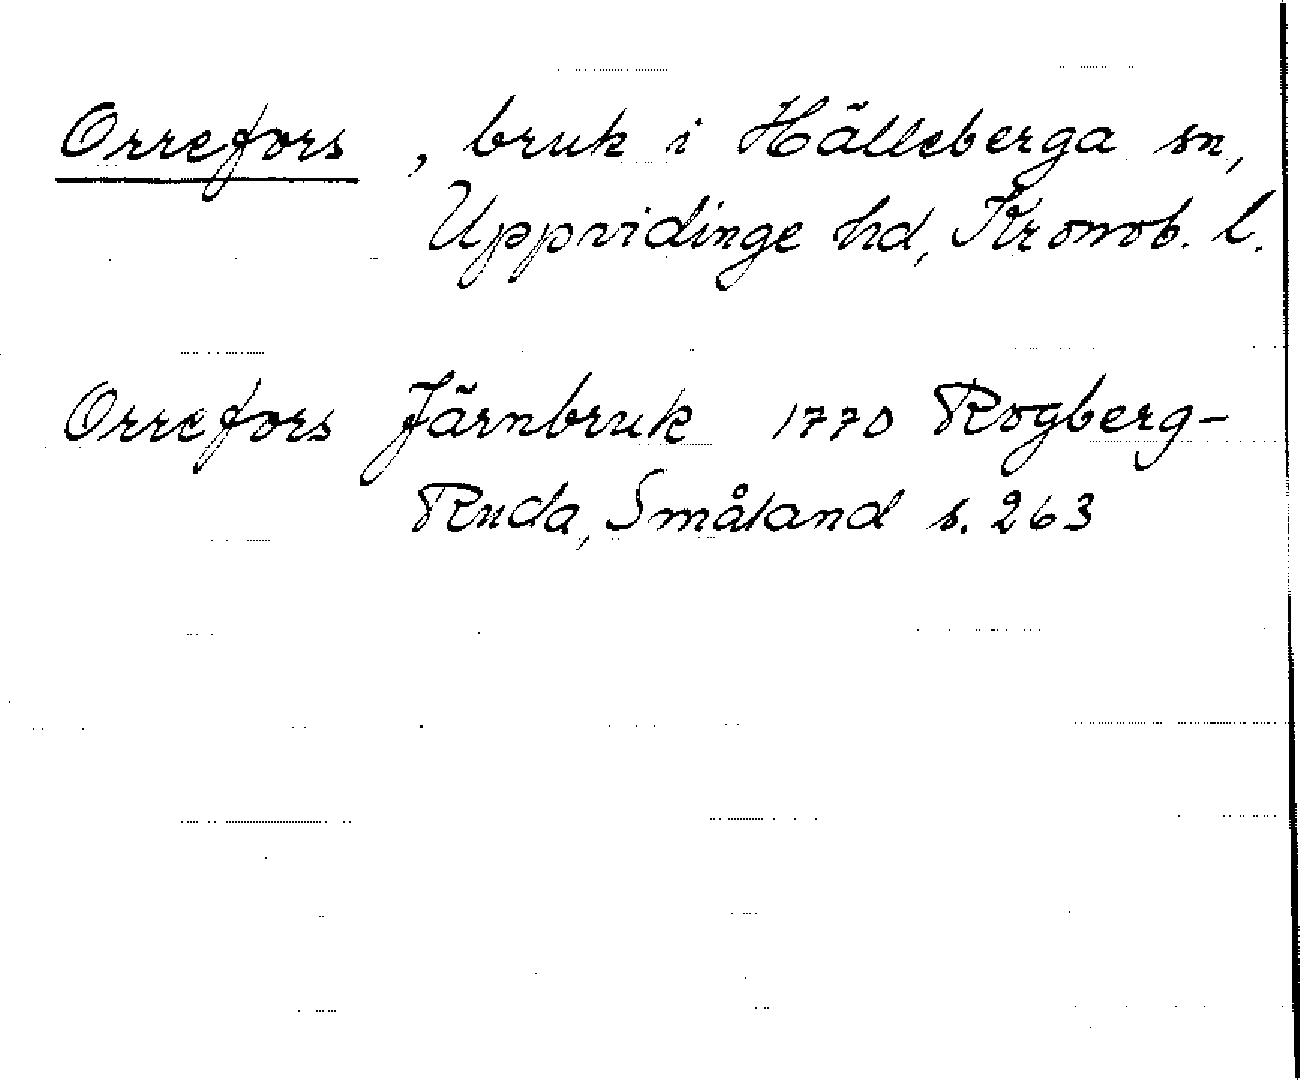 Orrefors, bruk i Hälleberga sn,
Uppvidinge hd, Kronob. l.
Orrefors Järnbruk 1770 Rogberg-
Ruda, Småland s. 263